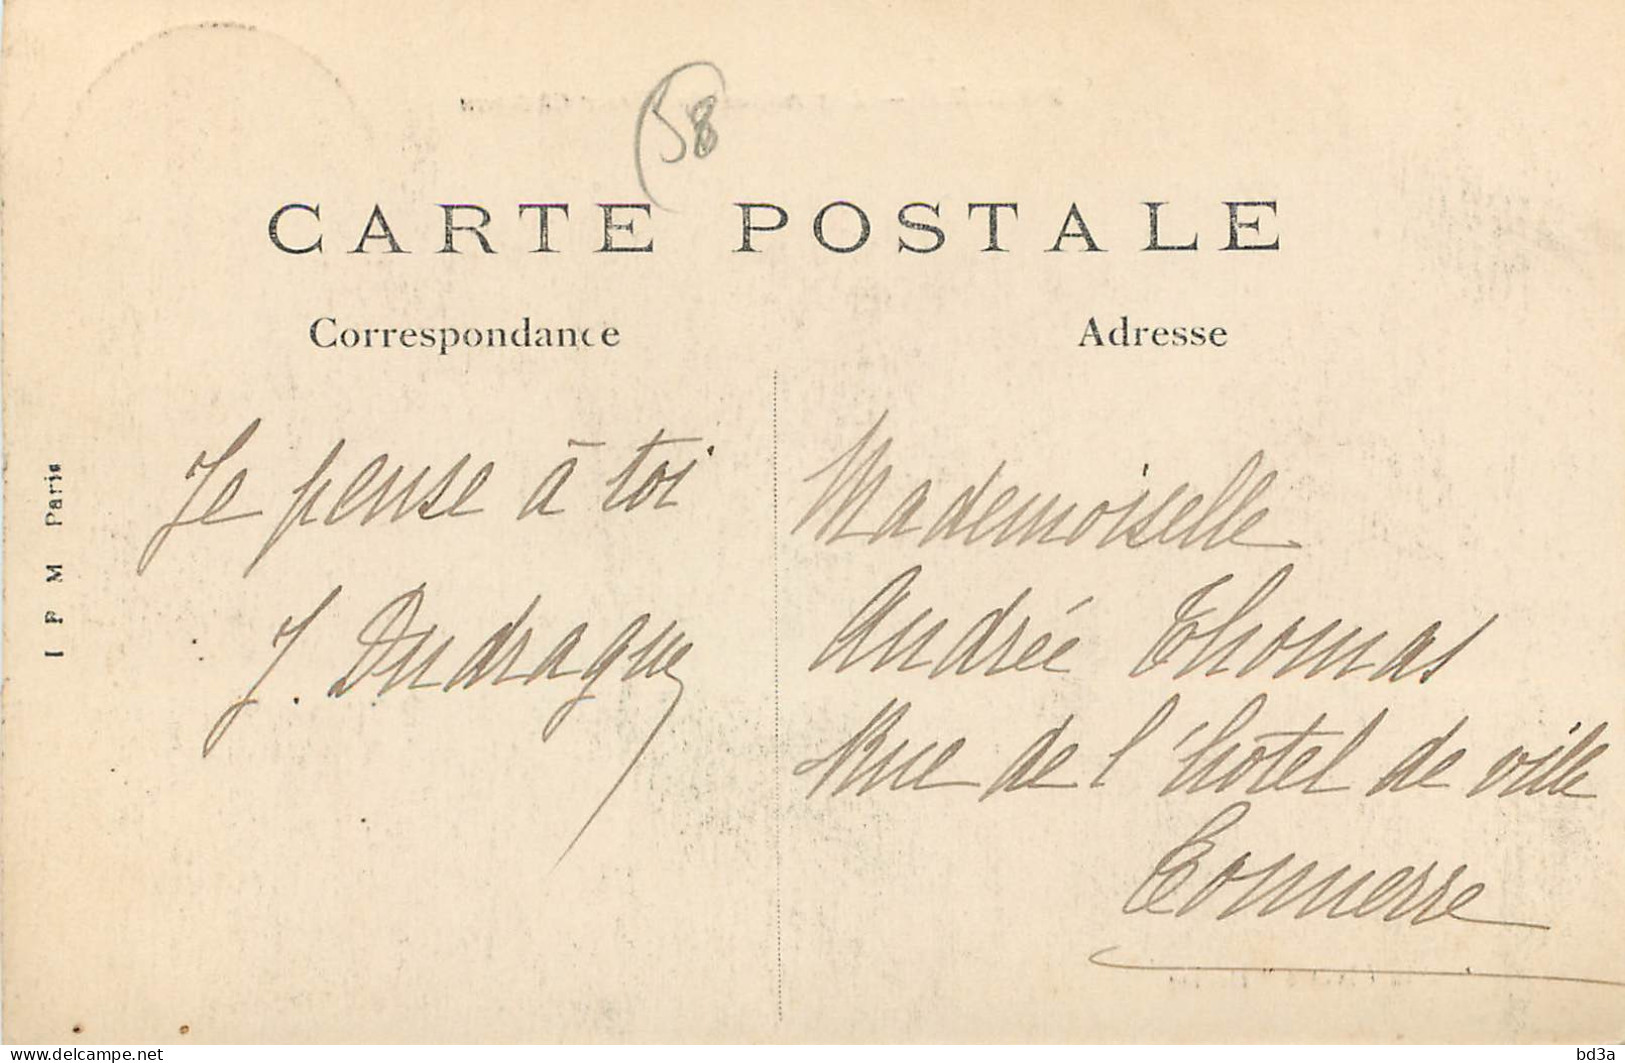 58
CARTE POSTALE
Correspondance
Adresse
Je pense à toi
J. Dudrague
Mademoiselle
Andrée Thomas
Rue de l'hotel de ville
Tonnerre
I P M Paris
delcampe.net
bd3a